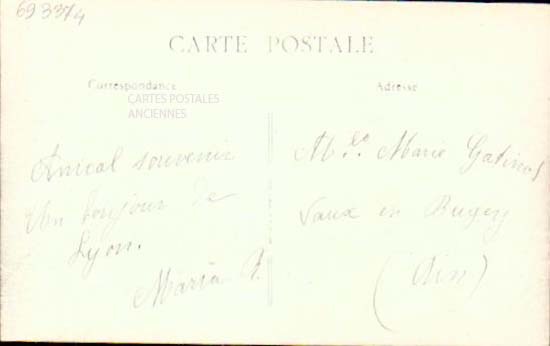 693374
CARTE POSTALE
Correspondance
Adresse
CARTES POSTALES
ANCIENNES
Amical souvenir
Un bonjour de
Lyon.
Maria
Mlle Marie
Vaux en Bugey
(Ain)